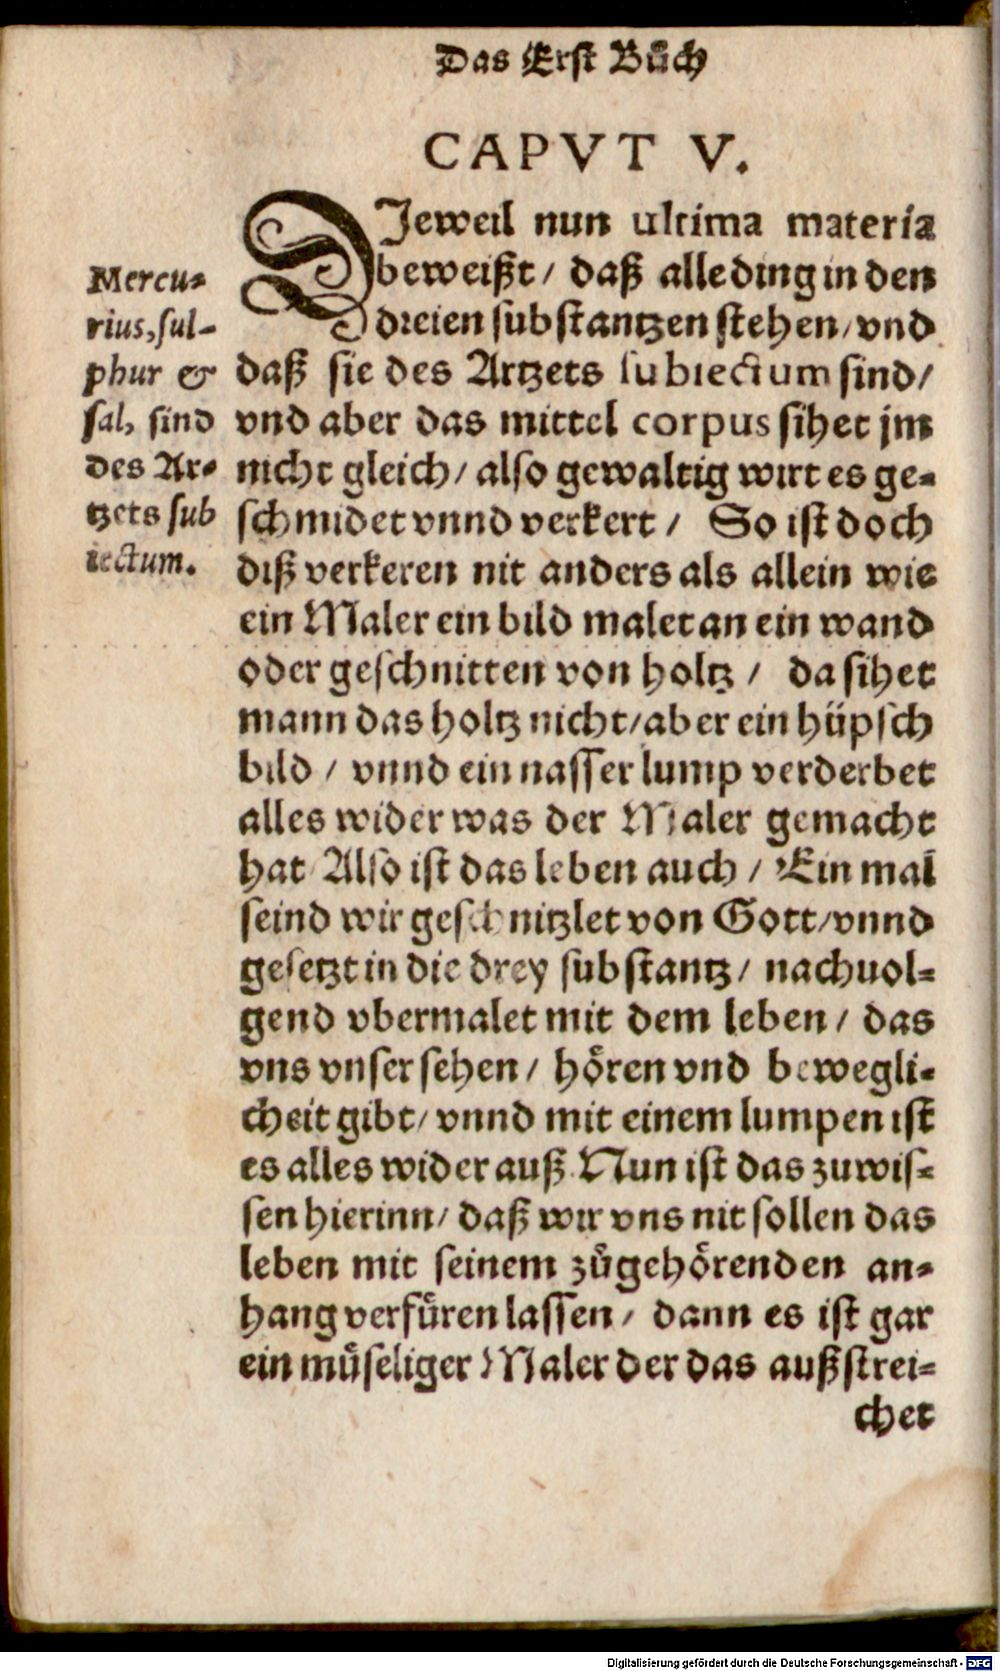 Das Erst Bůch
CAPVT V.
DJeweil nun ultima materia
beweißt/ daß alle ding in den
dreien substantzen stehen/ vnd
daß sie des Artzets subiectum sind/
vnd aber das mittel corpus sihet jm
nicht gleich/ also gewaltig wirt es ge-
schmidet vnnd verkert/ So ist doch
diß verkeren nit anders als allein wie
ein Maler ein bild malet an ein wand
oder geschnitten von holtz/ da sihet
mann das holtz nicht/ aber ein hüpsch
bild/ vnnd ein nasser lump verderbet
alles wider was der Maler gemacht
hat/ Also ist das leben auch/ Ein mal
seind wir geschnitzlet von Gott/ vnnd
gesetzt in die drey substantz/ nachuol-
gend vbermalet mit dem leben/ das
vns vnser sehen/ hoͤren vnd bewegli-
cheit gibt/ vnnd mit einem lumpen ist
es alles wider auß. Nun ist das zuwis-
sen hierinn/ daß wir vns nit sollen das
leben mit seinem zůgehoͤrenden an-
hang verfuͤren lassen/ dann es ist gar
ein muͤseliger Maler der das außstrei-
chet
Mercu-
rius, sul-
phur &
sal, sind
des Ar-
tzets sub
iectum.
Digitalisierung gefördert durch die Deutsche Forschungsgemeinschaft - DFG